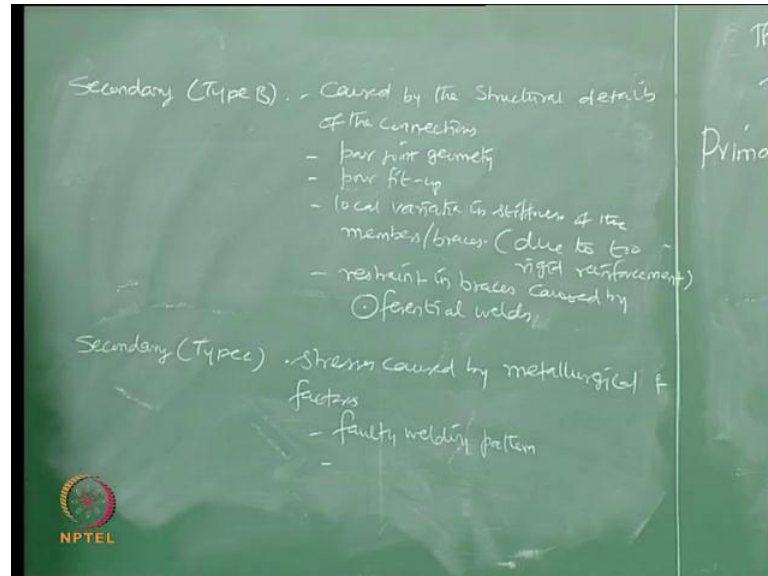 Secondary (Type B). - Caused by the structural details
of the connections
- poor joint geometry
- poor fit-up
- local variation in stiffness of the
members/braces. (due to too
rigid reinforcement)
- restraint in braces caused by
⊙ferential welds
Secondary (Type C) . stresses caused by metallurgical
factors
- faulty welding pattern
-
Th
Prima
NPTEL